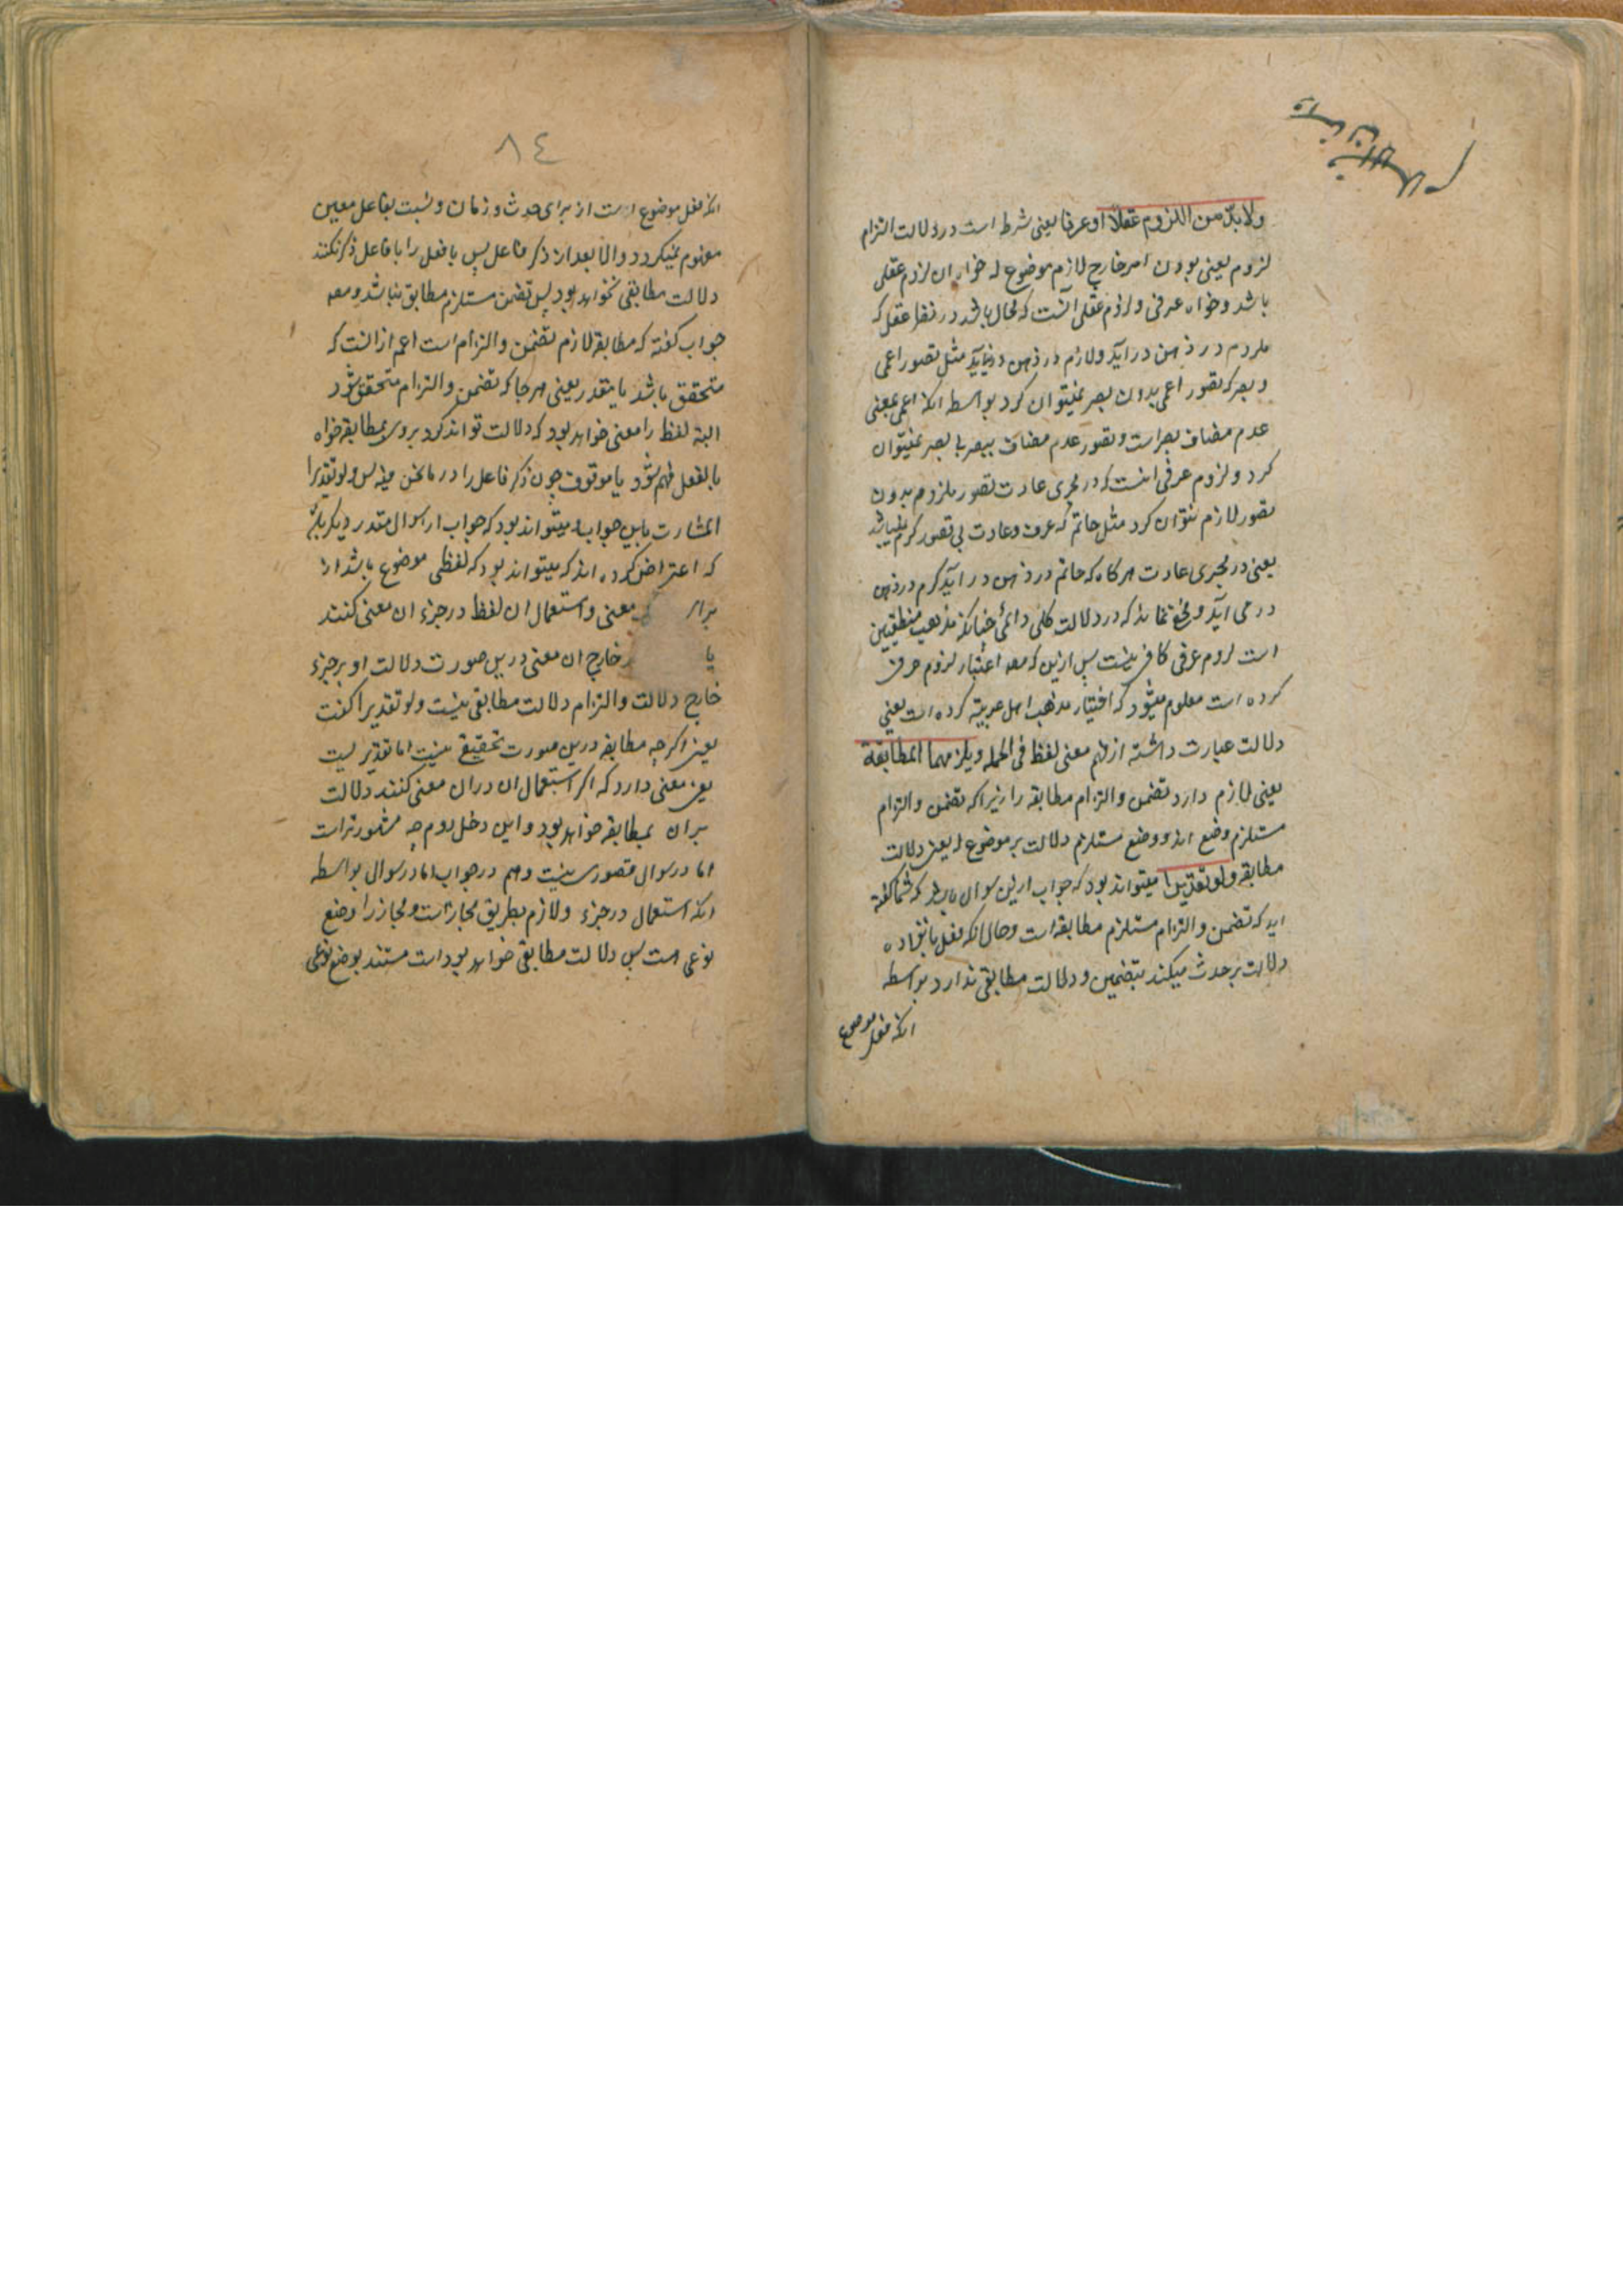 ولا بدّ من اللزوم عقلاً او عرفا یعنی شرط است در دلالت التزام
لزوم یعنی بودن امر خارج لازم موضوع له خواه ان لزوم عقلی
باشد و خواه عرفی و لزوم عقلی آنست که محال باشد در نظر عقل که
ملزوم در ذهن در آید و لازم در ذهن در نیاید مثل تصور اعمی
و بصر که تصور اعمی بدون بصر نمیتوان کرد بواسطه انکه اعمی بمعنی
عدم مضاف ببصر است و تصور عدم مضاف ببصر بی بصر نمیتوان
کرد و لزوم عرفی انست که در مجری عادت تصور ملزوم بدون
تصور لازم نتوان کرد مثل حاتم که عرف و عادت بی تصور کرم نمیباشد
یعنی در مجری عادت هر کاه که حاتم در ذهن در آید کرم در ذهن
در می آید و مخفی نماند که در دلالت کلی دائمی چنانکه مذهب منطقیین
است لزوم عرفی کافی نیست پس ازین که مصه اعتبار لزوم عرفی
کرده است معلوم میشود که اختیار مذهب اهل عربیة کرده است یعنی
دلالت عبارت داشته از فهم معنی لفظ فی الجمله ویلزمهما المطابقة
یعنی لازم دارد تضمن و التزام مطابقه را زیرا که تضمن و التزام
مستلزم وضع اند و وضع مستلزم دلالت بر موضوع له یعنی دلالت
مطابقه ولو تقدیرا میتواند بود که جواب ازین سوال باشد که شما گفته
اید که تضمن و التزام مستلزم مطابقه است و حال انکه فعل بانفراده
دلالت بر حدث میکند بتضمین و دلالت مطابقی ندارد بواسطه
انکه فعل موضوع
٨٤
انکه فعل موضوع است از برای حدث و زمان و نسبت بفاعل معین
مفهوم نمیکردد والا بعد از ذکر فاعل پس با فعل را با فاعل ذکر نکنند
دلالت مطابقی نخواهد بود پس تضمن مستلزم مطابق نباشد و مصه
جواب کفته که مطابقه لازم تضمن و التزام است اعم از انست که
متحقق باشد یا مقدر یعنی هر جا که تضمن و التزام متحقق شود
البته لفظ را معنی خواهد بود که دلالت تواند کرد بروی بمطابقه خواه
بالفعل فهم شود یا موقوف چون ذکر فاعل را در ما نحن فیه پس ولو تقدیرا
اشارت باین جواب و میتواند بود که جواب از سوال مقدر دیکر باشد
که اعتراض کرده اند که میتواند بود که لفظی موضوع باشد از
برای معنی و استعمال ان لفظ در جزء ان معنی کنند
یا خارج ان معنی درین صورت دلالت او بر جزء
خارج دلالت و التزام دلالت مطابقی نیست ولو تقدیرا کفت
یعنی اکرچه مطابقه درین صورت تحقیقی نیست اما تقدیر یست
یعنی معنی دارد که اکر استعمال ان در ان معنی کنند دلالت
بران بمطابقه خواهد بود و این دخل دوم چه مشهورتر است
اما در سوال قصوری نیست و هم در جواب اما در سوال بواسطه
انکه استعمال در جزء و لازم بطریق مجاز است و مجاز را وضع
نوعی هست پس دلالت مطابقی خواهد بود است مستند بوضع نوعی